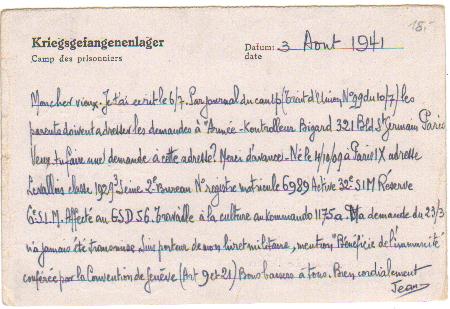 15.-
Kriegsgefangenenlager
Camp des prisonniers
Datum: 3 Aout 1941
date
Mon cher vieux. Je t'ai ecrit le 6/7. Par journal du camp (Trait d'Union N°99 du 10/7) les
parents doivent adresser les demandes à "Armée - Kontrolleur Bigard 321 Bd St Germain Paris
Veux-tu faire une demande à cette adresse? Merci d'avance. Né le 4/10/09 à Paris IX adresse
Levallois classe 1929 3° Seine 2° Bureau N° registre matricule 6989 Active 32° SIM Réserve
6° SIM. Affecté au GSD 56. Travaille à la culture au kommando 1175a. Ma demande du 23/3
n'a jamais été transmise. Suis porteur de mon livret militaire, mention "Bénéficie de l'immunité"
conférée par la Convention de Genève (Art 9 et 21) Bons baisers à tous. Bien cordialement
Jean